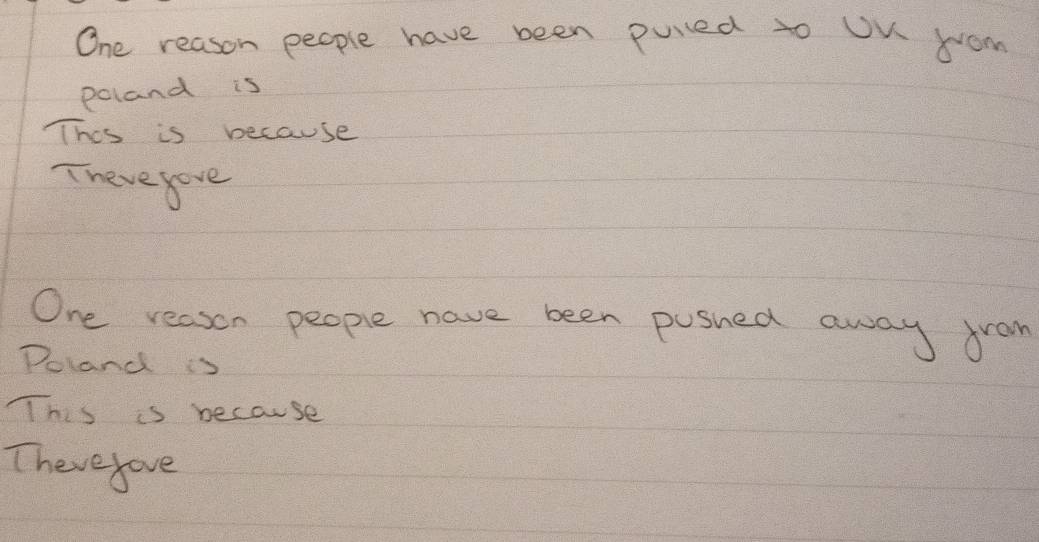 One reason people have been pulled to UK from
poland is
This is because
Therefore
One reason people have been pushed away from
Poland is
This is because
Therefore